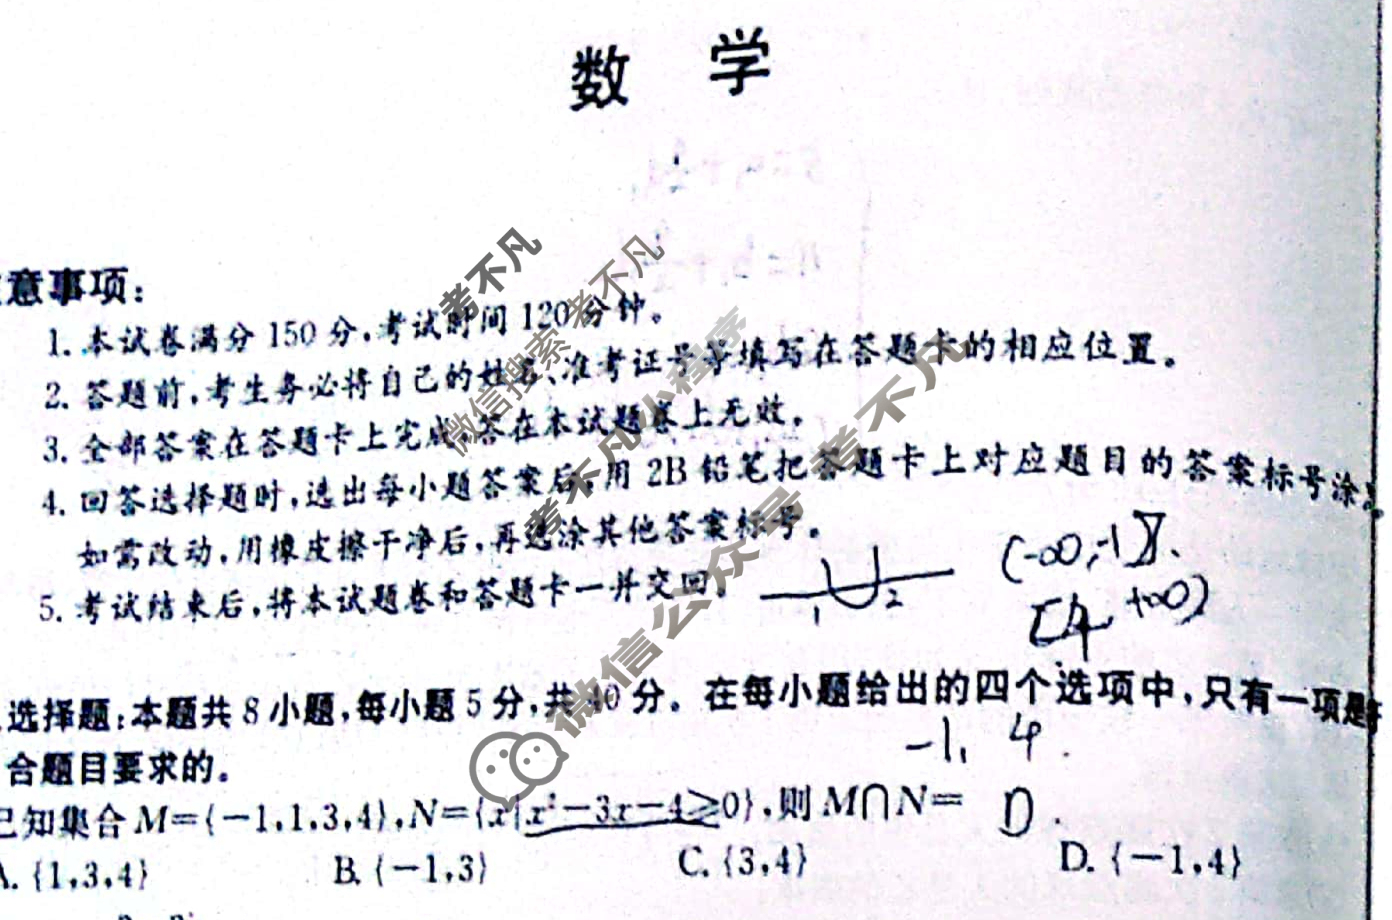 数 学
意事项:
1. 本试卷满分 150 分,考试时间 120 分钟。
2. 答题前,考生务必将自己的姓名、准考证号等填写在答题卡的相应位置。
3. 全部答案在答题卡上完成,答在本试题卷上无效。
4. 回答选择题时,选出每小题答案后,用 2B 铅笔把答题卡上对应题目的答案标号涂
如需改动,用橡皮擦干净后,再选涂其他答案标号。
5. 考试结束后,将本试题卷和答题卡一并交回。
1 2
(-∞,-1]
[4 +∞)
选择题:本题共 8 小题,每小题 5 分,共 40 分。在每小题给出的四个选项中,只有一项是
合题目要求的。
-1, 4
已知集合 M={-1,1,3,4},N={x|x²-3x-4≥0},则 M∩N= D.
A. {1,3,4} B. {-1,3} C. {3,4} D. {-1,4}
考不凡
微信搜索 考不凡
考不凡小程序
微信公众号 考不凡